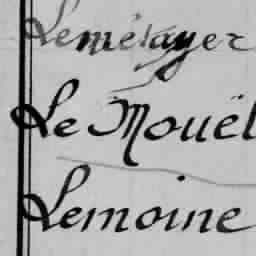 Lemétayer
Le Mouël
Lemoine